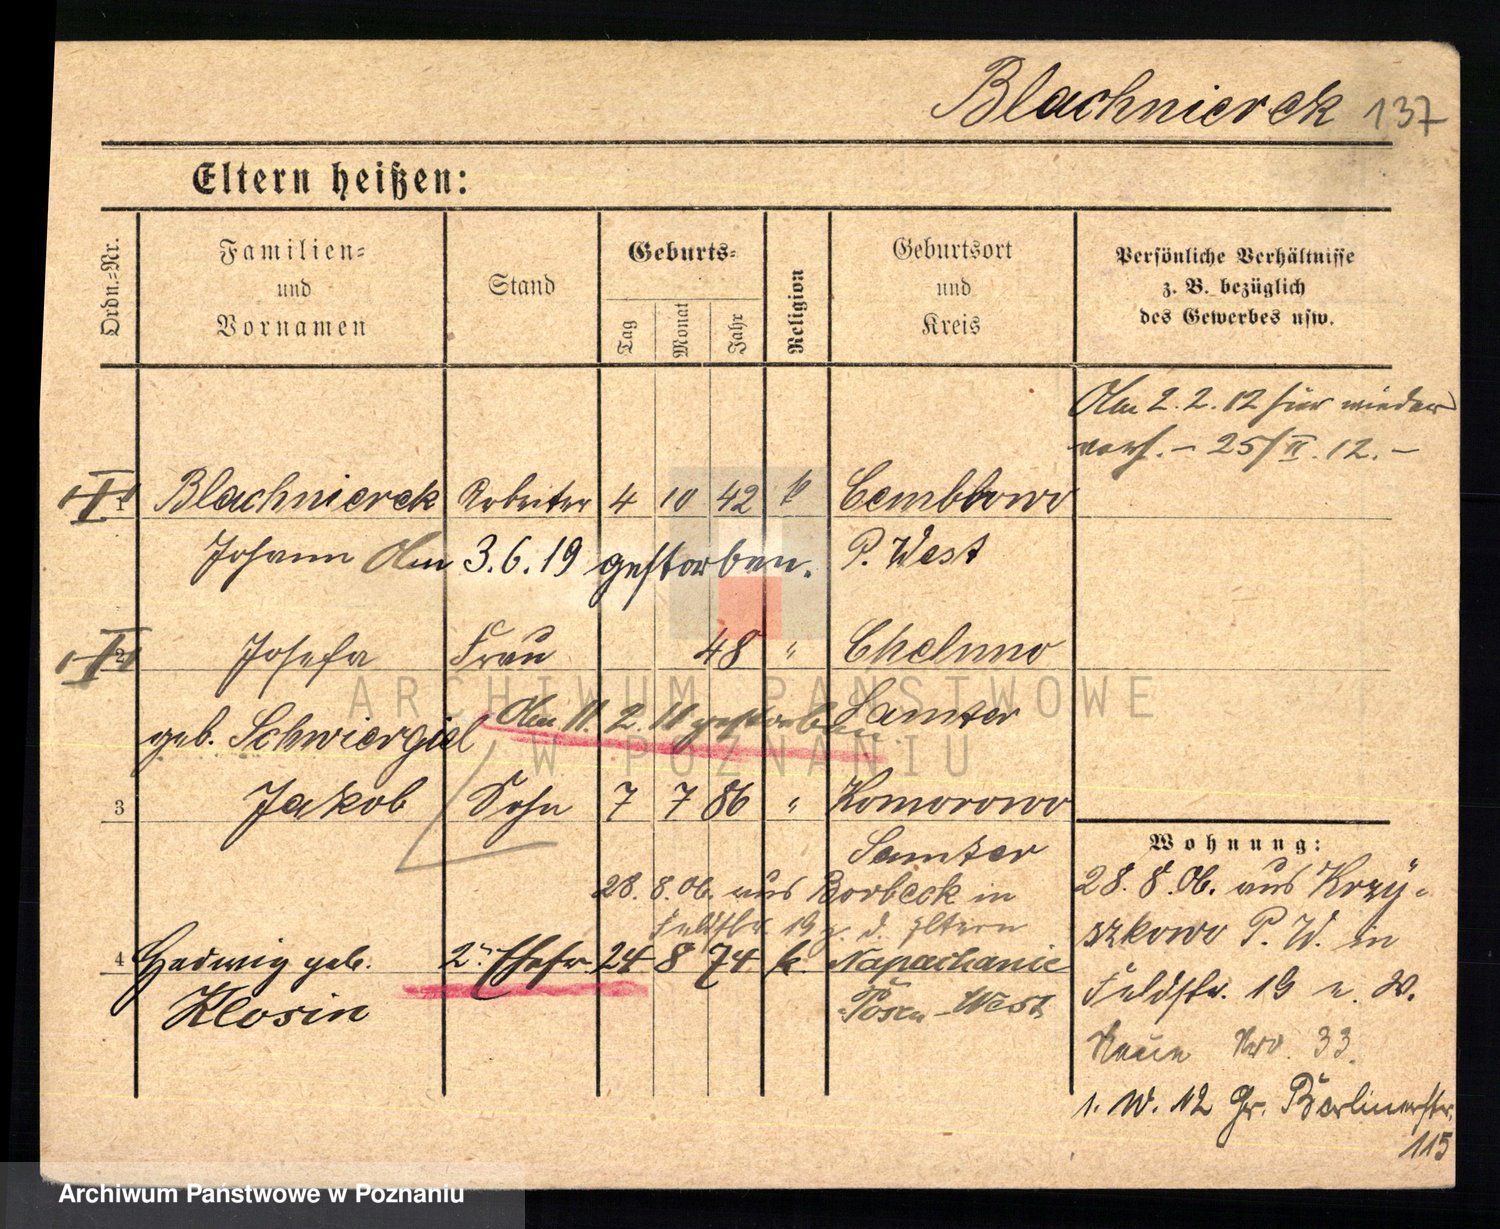 Blachnierek 137
Eltern heißen:
Ordn.-Nr.
Familien-
und
Vornamen
Stand
Geburts-
Tag
Monat
Jahr
Religion
Geburtsort
und
Kreis
Persönliche Verhältnisse
z. B. bezüglich
des Gewerbes usw.
Am 2.2.12 hier wieder
25/II.12.-
1 Blachnierek Arbeiter 4 10 42 k Cembbowo
Johann Am 3.6.19 gestorben. P. West
2 Josefa Frau 48 " Chelmno
geb. Schwiergiel Am 11.2.11 gestorben Samter
3 Jakob Sohn 7 7 86 " Komorowo
Samter
28.8.06. aus Borbeck in
Feldstr. 19 z. d. Eltern
4 Hedwig geb. 2. Ehefr. 24 8 74 k. Napachanie
Klosin Posen-West
Wohnung:
28.8.06. aus Krzy-
szkowo P.W. in
Feldstr. 19 n. W.
Neue Nro. 33.
1. W. 12 Gr. Berlinerstr.
115
ARCHIWUM PAŃSTWOWE
W POZNANIU
Archiwum Państwowe w Poznaniu